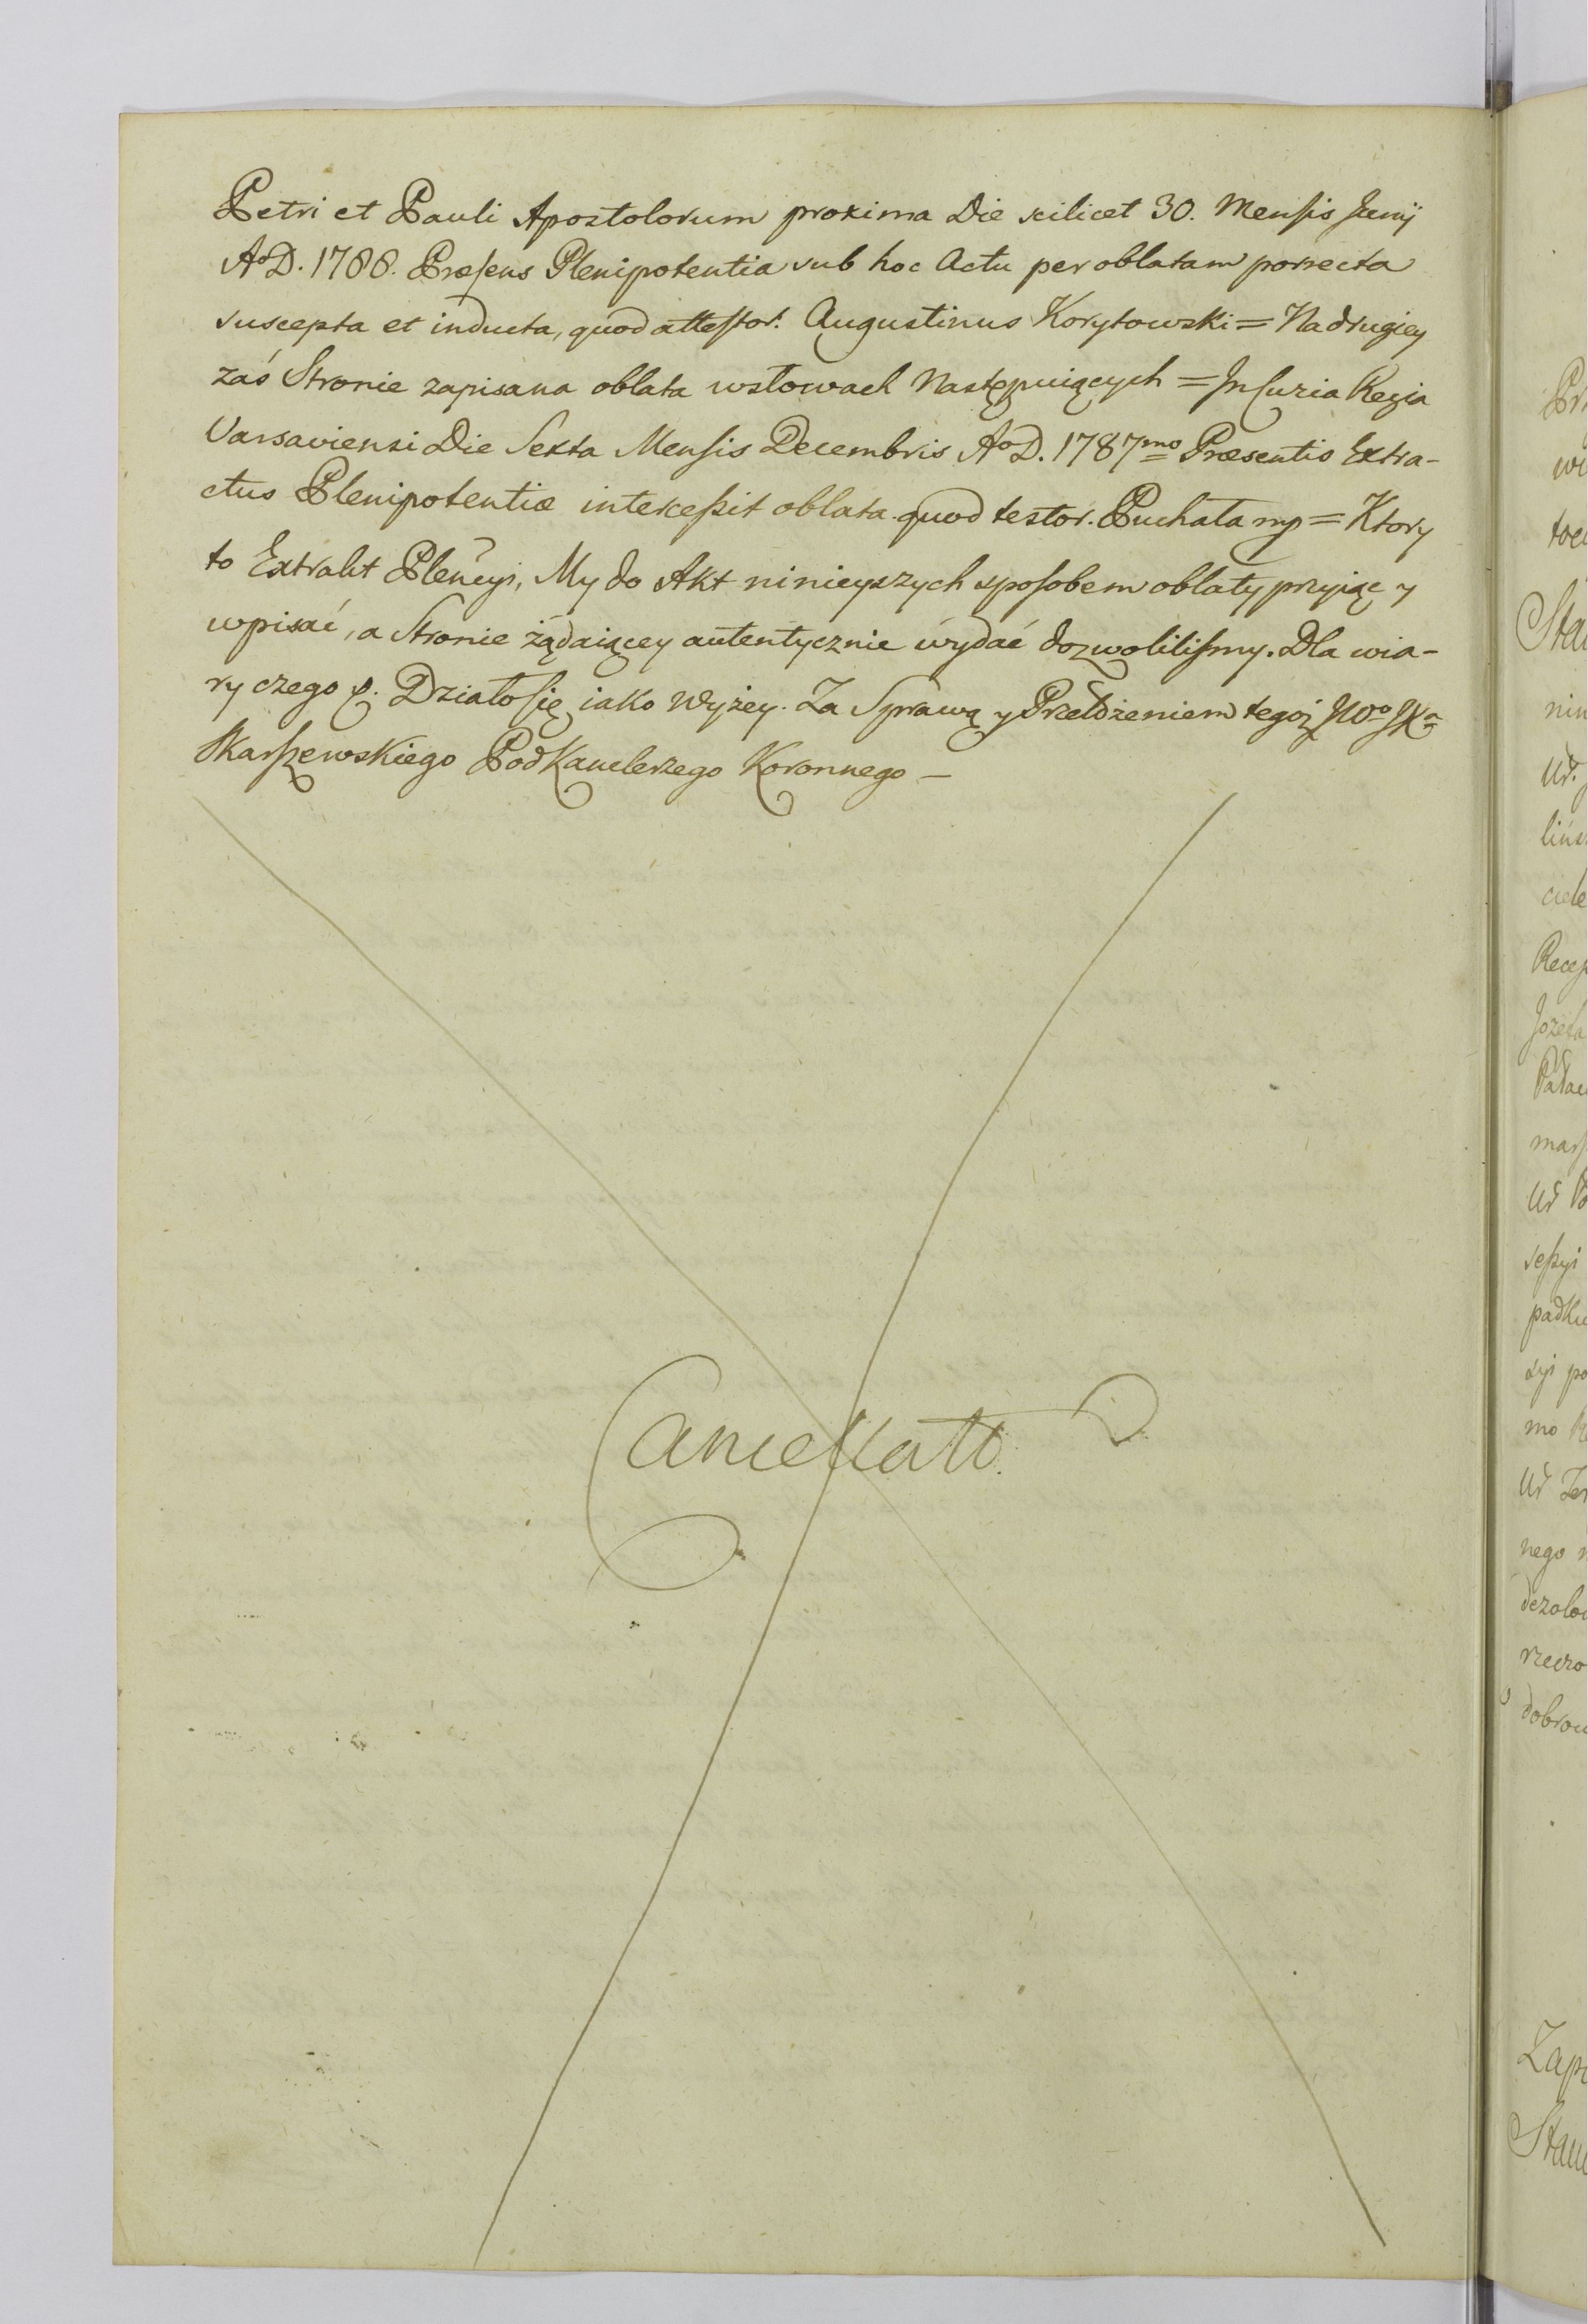 Petri et Pauli Apostolorum proxima Die scilicet 30. Mensis Junij
AoD. 1788. Præsens Plenipotentia sub hoc Actu per oblatam porrecta
suscepta et inducta, quod attestor. Augustinus Korytowski = Na drugiey
zaś Stronie zapisana oblata w słowach Następuiących = In Curia Regia
Varsaviensi Die Sexta Mensis Decembris AoD. 1787mo Præsentis Extra-
ctus Plenipotentiæ intercessit oblata. quod testor. Puchała mp = Ktory
to Extrakt Plencyi, My do Akt ninieyszych sposobem oblaty przyiąc y
wpisać, a Stronie żądaiącey autentycznie wydać dozwolilismy. Dla wia-
ry czego &. Działo się iako wyżey. Za Sprawą y Przełożeniem tegoż JWo JXa
Skarszewskiego Podkanclerzego Koronnego —
Cancellatt.
Pr
wi
Sta
nin
Ur.
lińs
ciele
Recep
Jozefa
Pałac
mars
Ur
sessyi
padku
syi po
mo
Ur
nego
dezolo
rzeczo
dobrow
Zapi
Stan